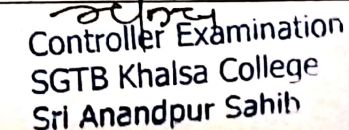 Controller Examination
SGTB Khalsa College
Sri Anandpur Sahib